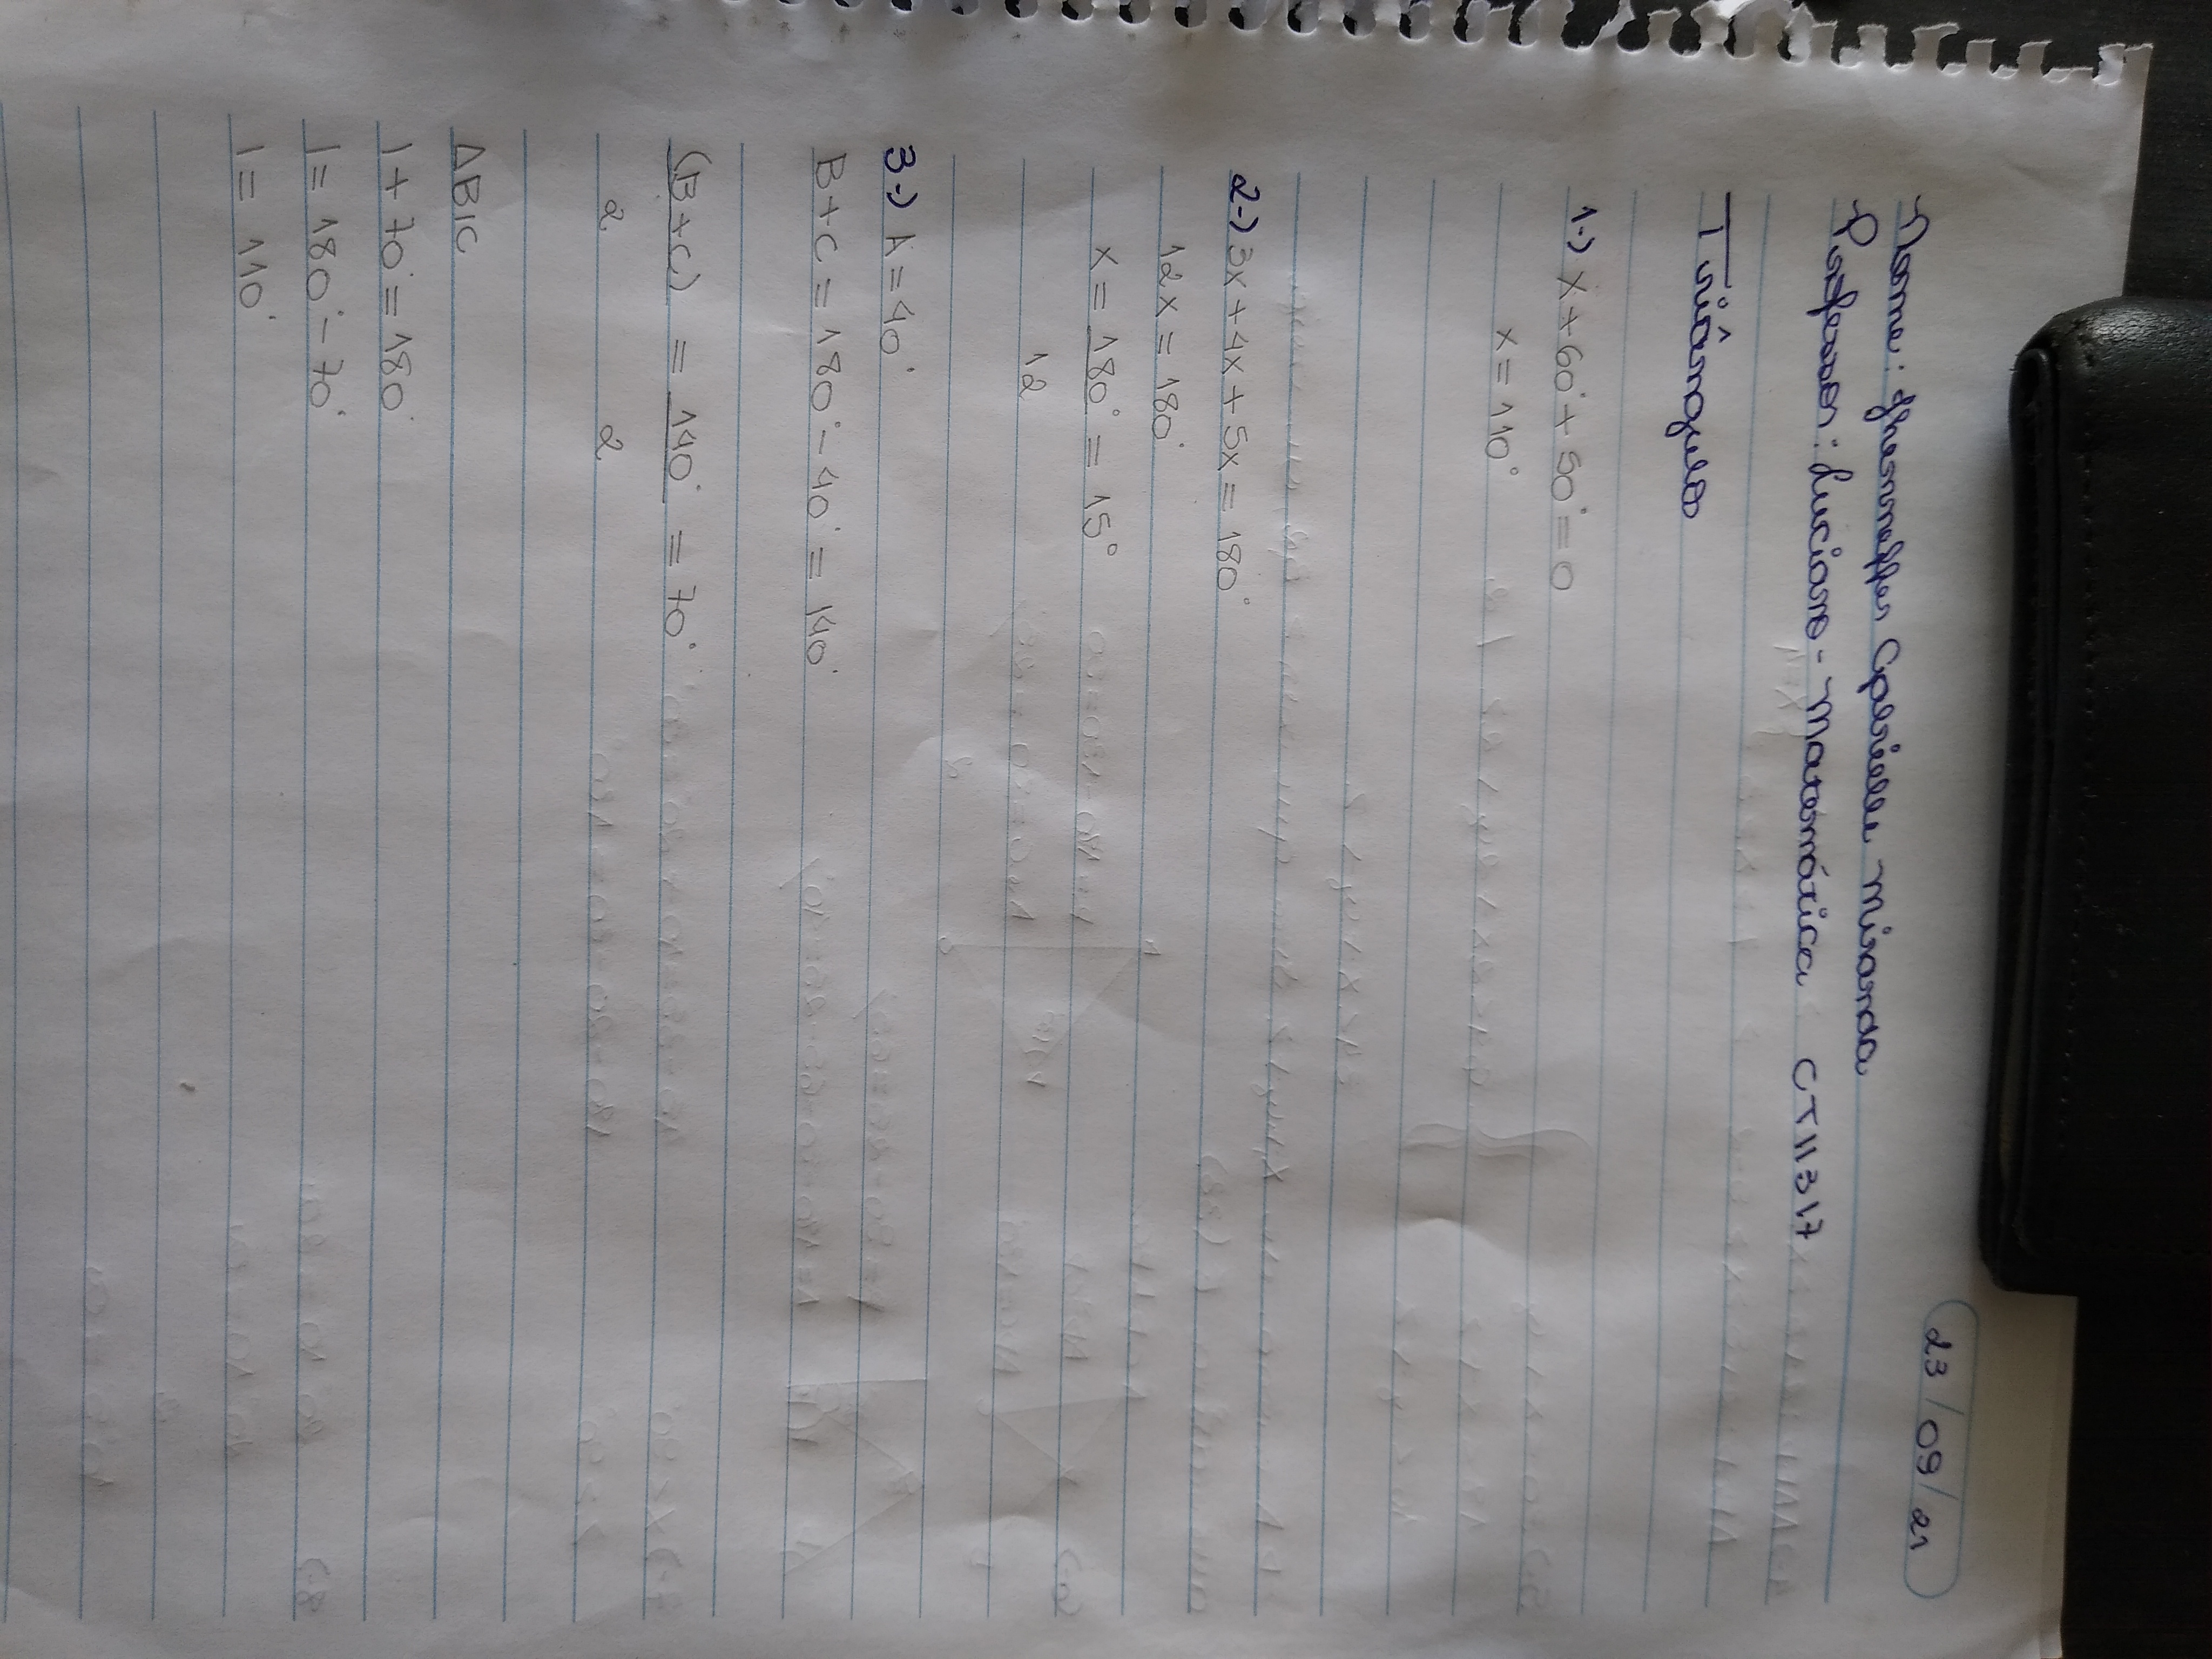 23/09/21
Nome: Jhenneffer Gabrielle Miranda
Professor: Luciano - Matemática CTII317
Triângulos
1-) x+60°+50°=0
x=110°
2-) 3x+4x+5x=180°
12x=180°
x=180°=15°
12
3-) A=40°
B+C=180°-40°=140°
(B+C) = 140° = 70°
2 2
ΔBIC
I+70°=180°
I=180°-70°
I=110°